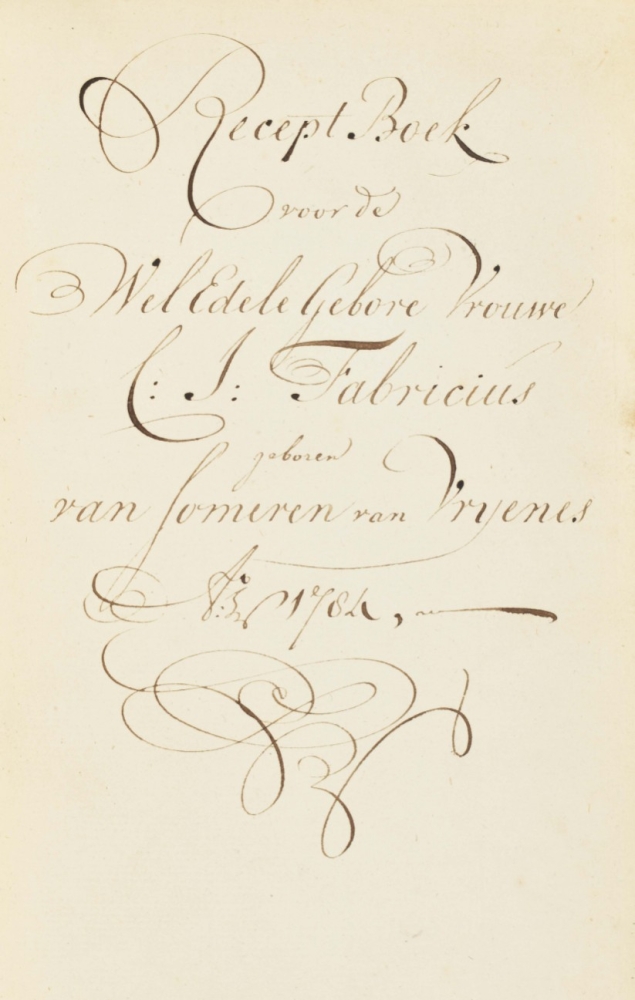 Recept Boek
voor de
Wel Edele Gebore Vrouwe
C: J: Fabricius
geboren
van Someren van Vryenes
Ao 1784,